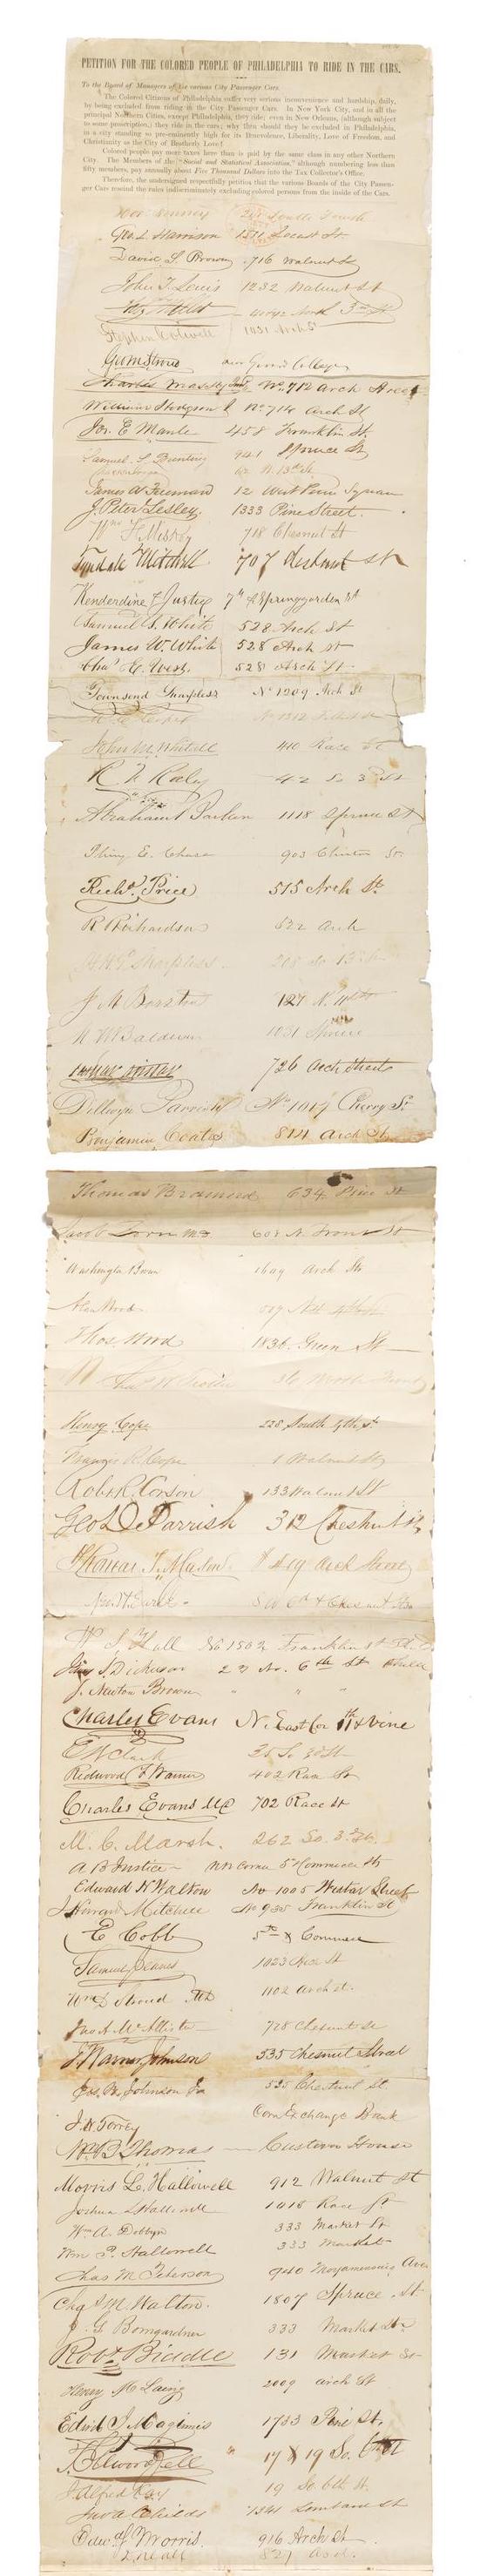 PETITION FOR THE COLORED PEOPLE OF PHILADELPHIA TO RIDE IN THE CARS.
To the Board of Managers of the various City Passenger Cars.
The Colored Citizens of Philadelphia suffer very serious inconvenience and hardship, daily,
by being excluded from riding in the City Passenger Cars. In New York City, and in all the
principal Northern Cities, except Philadelphia, they ride; even in New Orleans, (although subject
to some proscription,) they ride in the cars; why then should they be excluded in Philadelphia,
in a city standing so pre-eminently high for its Benevolence, Liberality, Love of Freedom, and
Christianity as the City of Brotherly Love!
Colored people pay more taxes here than is paid by the same class in any other Northern
City. The Members of the "Social and Statistical Association," although numbering less than
fifty members, pay annually about Five Thousand Dollars into the Tax Collector's Office.
Therefore, the undersigned respectfully petition that the various Boards of the City Passen-
ger Cars rescind the rules indiscriminately excluding colored persons from the inside of the Cars.
South Fourth
Geo. L. Harrison 1511 Locust St
David S. Brown 716 Walnut St
John T. Lewis 1232 Walnut St
North 3rd St
Stephen Colwell 1031 Arch St
Geo M Stroud Girard College
Charles No. 712 Arch Street
William Hodgson Jr No. 714 Arch St
Jos. E Maule 458 Franklin St.
Samuel S. Bunting 941 Spruce St
62 N. 13th St
James W Freeman 12 West Penn Square
J. Peter Lesley. 1333 Pine Street.
Wm F. Miskey 718 Chesnut St
Tyndale & Mitchell 707 Chesnut St
Henderdine & Justice 7th & Springgarden St
Samuel S. White 528 Arch St
James W. White 528 Arch St
Chas. E. West. 528 Arch St.
Townsend Sharpless No 1209 Arch St
John M. Whitall 410 Race St
So 3rd St
Abraham Barker 1118 Spruce St
Pliny E. Chase 903 Clinton St.
Richd. Price 515 Arch St.
R Richardson 522 Arch
Sharpless. 208 So 13th
127 N. 11th
M W Baldwin Spruce
Caspar Wistar 726 Arch Street
Dillwyn Parrish No. 1017 Cherry St.
Benjamin Coates Arch St.
Thomas Brainerd 634 Pine St
Jacob Horn M.D. N. Front St
Washington Brown 1609 Arch St
Alan Wood
Thos. Wood 1836 Green St
North Front
Henry Cope South 4th St
Francis R. Cope 1 Walnut St
Robt R. Corson 133 Walnut St
Geo D. Parrish 312 Chesnut St
Thomas Arch Street
6th & Chesnut Sts
W. S. Hall Franklin St
S. Dickerson No. 6th St
J. Newton Brown " "
Charles Evans N. East Cor 11th & Vine
E W Clark 35 So 3d St
Redwood F Warner 402 Race St
Charles Evans MD 702 Race St
M. C. Marsh. 262 So. 3rd St.
A B Justice N W Corner 5th Commerce Sts
Edward H Walton No 1005 Wistar Street
J Howard Mitchell No 935 Franklin St
E Cobb 5th & Commerce
Samuel Jeanes 1023 Arch St
Wm D Stroud MD 1102 Arch st.
Jno A. McAllister 728 Chesnut St
J Warner Johnson 535 Chesnut Street
Jas. W. Johnson 535 Chestnut St.
J. W. Torrey Corn Exchange Bank
Wm. B. Thomas Custom House
Morris L. Hallowell 912 Walnut St
Joshua L Hallowell 1018 Race St.
Wm A. Dobbyn 333 Market St
Wm P. Hallowell 333 Market
Chas M Peterson 940 Moyamensing Ave
Chas M. Walton. 1807 Spruce St
J. G. Bomgardner 333 Market St
Robt Biddle 131 Market St
Henry M Laing 2009 Arch St
Edwd J Maginnis 1733 Pine St.
T. Ellwood Zell 17 & 19 So. 6th St
Alfred 19 So 6th St.
Childs 1341 Lombard St
Edw. Morris. 916 Arch St.